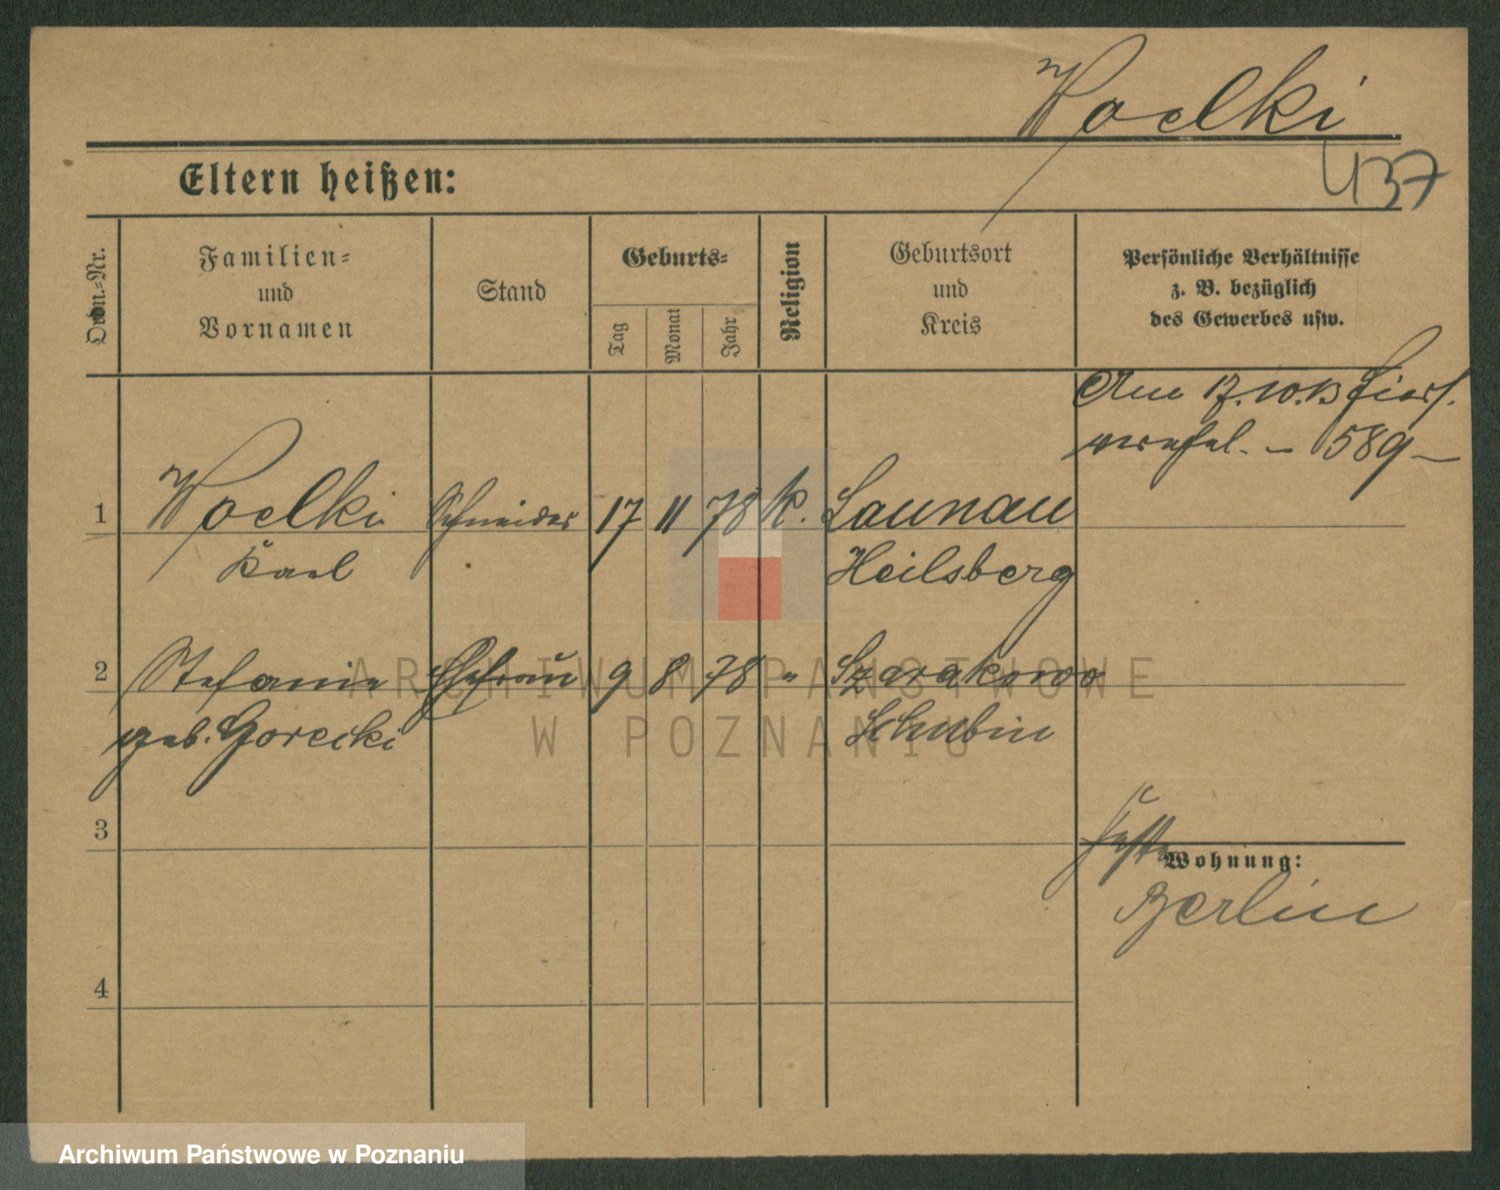 Woelki
437
Eltern heißen:
Ordn.-Nr.
Familien-
und
Vornamen
Stand
Geburts-
Tag
Monat
Jahr
Religion
Geburtsort
und
Kreis
Persönliche Verhältnisse
z. B. bezüglich
des Gewerbes usw.
Am 17.10.13
589
1 Woelki Schneider 17 11 78 k. Launau
Karl Heilsberg
2 Stefanie Ehefrau 9 8 78 " Szarakowo
geb. Gorecki Schubin
3
Wohnung:
Berlin
4
ARCHIWUM PAŃSTWOWE
W POZNANIU
Archiwum Państwowe w Poznaniu